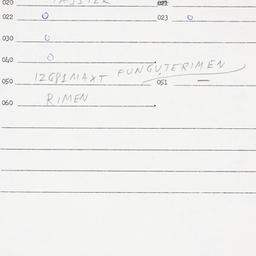 020
022 0 023 0
030 0
040 0
050 IZGPIMAXT FUNGUTERIMEN 051 —
060 RIMEN